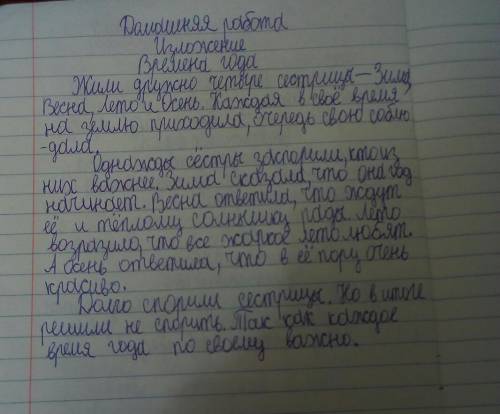 Домашняя работа
Изложение
Времена года
Жили дружно четыре сестрицы — Зима,
Весна, Лето и Осень. Каждая в своё время
на землю приходила, очередь свою соблю
-дала.
Однажды сёстры заспорили, кто из
них важнее. Зима сказала, что она год
начинает. Весна ответила, что ждут
её и тёплому солнышку рады. Лето
возразило, что все жаркое лето любят.
А осень ответила, что в её пору очень
красиво.
Долго спорили сестрицы. Но в итоге
решили не спорить. Так как каждое
время года по своему важно.